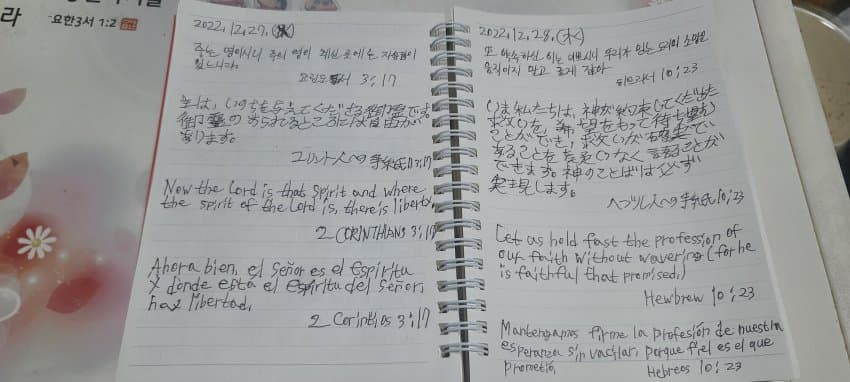 라
요한3서 1:2
2022.12.27.(火)
주는 영이시니 주의 영이 계신 곳에는 자유함이
있느니라
고린도후서 3:17
主は、いのちを与えてくださる御霊です。
御霊のあられるところには自由が
あります。
コリント人への手紙Ⅱ 3:17
Now the Lord is that Spirit and where
the spirit of the Lord is, there is liberty
2 CORINTHIANS 3:17
Ahora bien, el Señor es el Espiritu
y donde está el espíritu del Señor,
hay libertad.
2 Corintios 3:17
2022.12.28.(水)
또 약속하신 이는 미쁘시니 우리가 믿는 도리의 소망을
움직이지 말고 굳게 잡아
히브리서 10:23
いま私たちは、神が約束してくださた
救いを、希望をもって待ち望む
ことができ、救いが確実で
あることを疑いなく言ることが
できます。神のことばは必ず
実現します。
ヘブル人への手紙 10:23
Let us hold fast the profession of
our faith without wavering (for he
is faithful that promised.)
Hewbrew 10:23
Mantengamos firme la profesión de nuestra
esperanza sin vacilar, porque fiel es el que
prometió
Hebreos 10:23